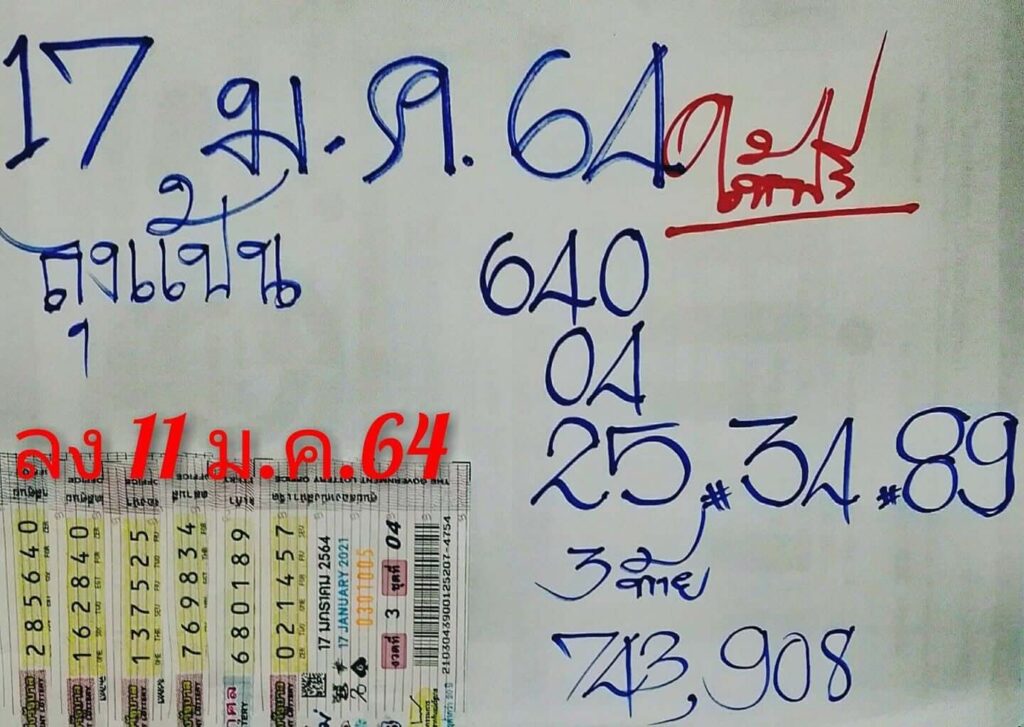 17 ม.ค. 64
ถุงแป้น
640
04
25 # 34 # 89
3 ท้าย
743, 908
ลง 11 ม.ค.64
THE GOVERNMENT LOTTERY OFFICE
285640
162840
137525
769834
680189
021457
17 มกราคม 2564
17 JANUARY 2021
0301005
งวดที่ 3 ชุดที่ 04
2103043900125207-4754